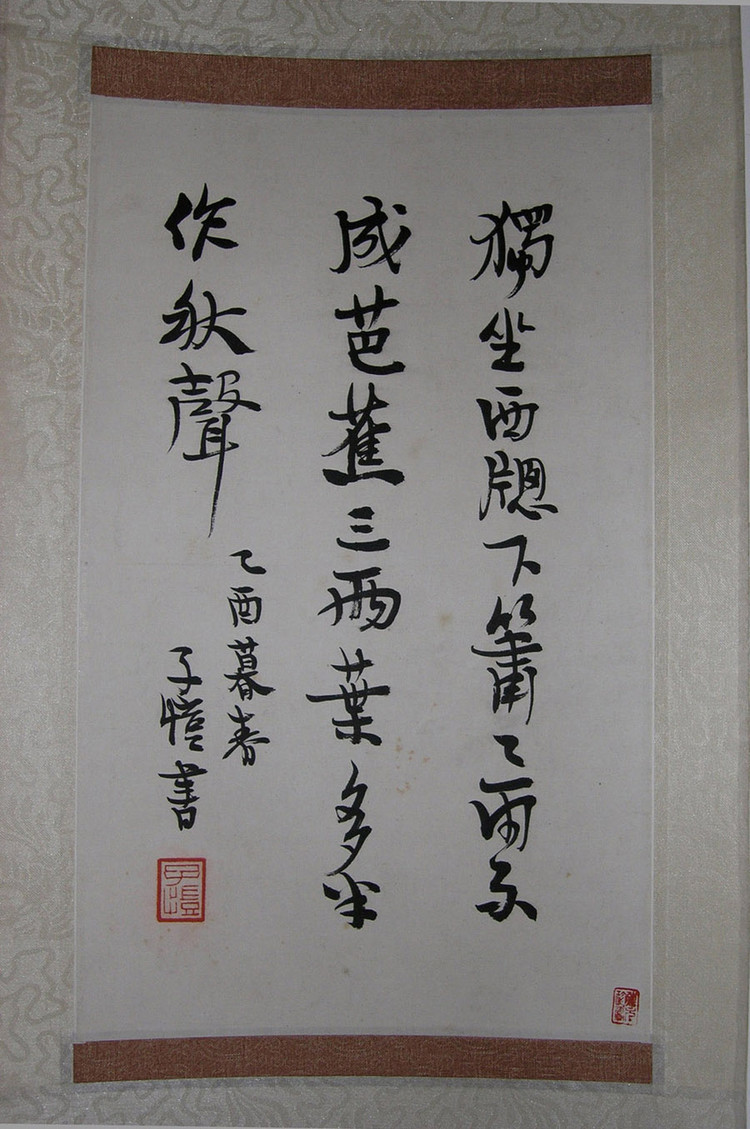 獨坐西牕下簫〻雨不
成芭蕉三兩葉多半
作秋聲
乙酉暮春
子愷書
子愷